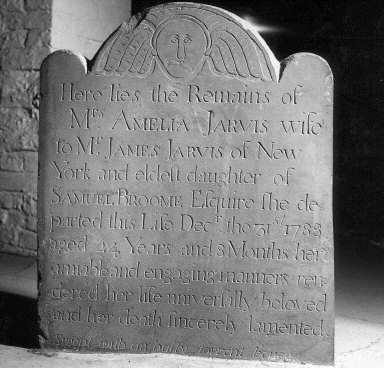 Here lies the Remains of
Mrs. AMELIA JARVIS wife
to Mr. JAMES JARVIS of New
York and eldest daughter of
SAMUEL BROOME Esquire she de
parted this Life Decr. the 31st 1788
aged 24 Years and 3 Months her
amiable and engaging manners ren
dered her life universally beloved
and her death sincerely lamented
torrent